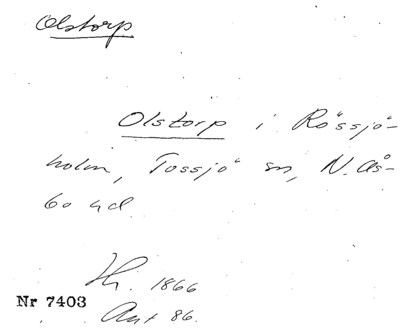 Olstorp
Olstorp i Rössjö-
holm, Tossjö sn, N. Ås-
bo hd.
Hr. 1866
Nr 7403
Ant 86.